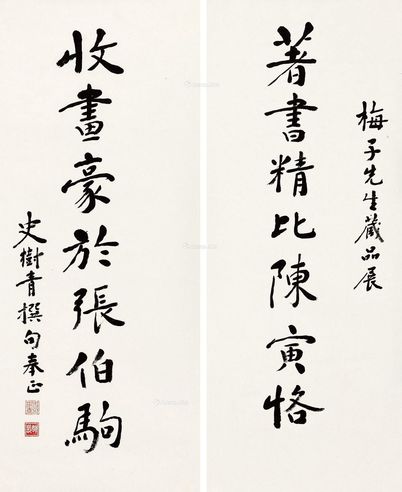 梅子先生藏品展
著書精比陳寅恪
收畫豪於張伯駒
史樹青撰句奉正